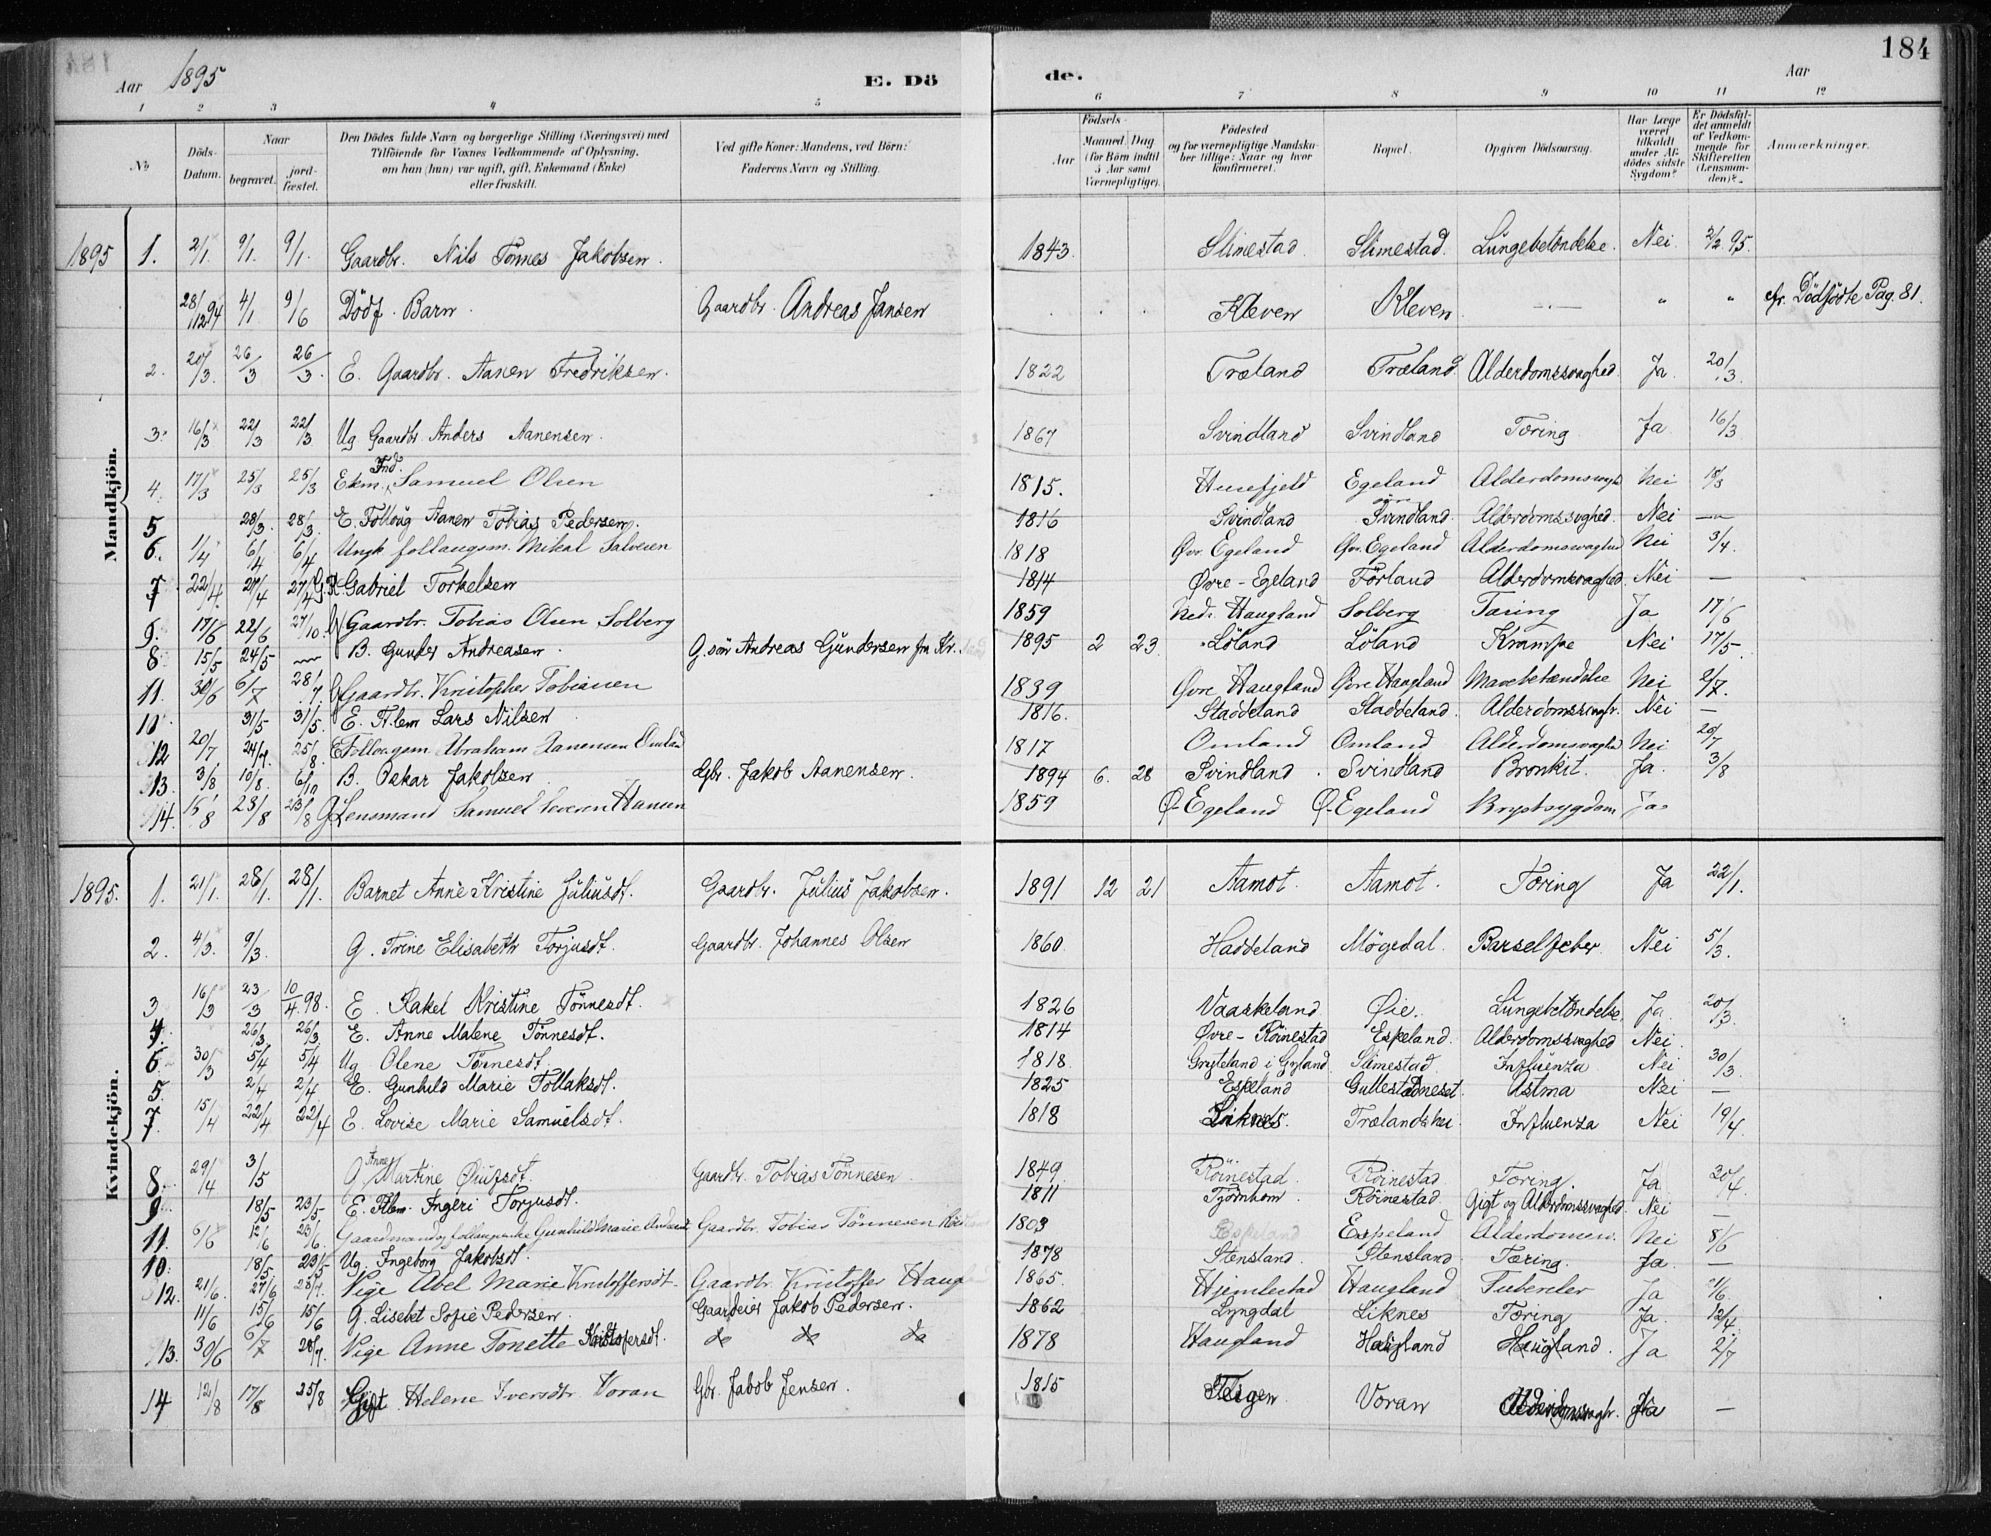 184
Aar 1895 E. Dö de. Aar
1 2 3 4 5 6 7 8 9 10 11 12
No
Döds-Datum.
Naar
begravet.
jord-fæstet.
Den Dödes fulde Navn og borgerlige Stilling (Næringsvei) med
Tilföiende for Voxnes Vedkommende af Oplysning,
om han (hun) var ugift, gift, Enkemand (Enke)
eller fraskilt.
Ved gifte Koner: Mandens, ved Börn:
Faderens Navn og Stilling.
Födsels-
Aar
Maaned Dag
(for Börn indtil
5 Aar samt
Værnepligtige).
Födested
og for værnepligtige Mandska-
ber tillige: Naar og hvor
konfirmeret.
Bopæl.
Opgiven Dödsaarsag.
Har Læge
været
tilkaldt
under Af-
dödes sidste
Sygdom?
Er Dödsfal-
det anmeldt
af Vedkom-
mende for
Skifteretten
(Lensman-
den)?
Anmærkninger.
Mandkjön.
1895 1. 2/1 9/1 9/1 Gaardbr. Nils Tönnes Jakobsen. 1843 Slimestad Slimestad Lungebetöndelse. Nei 2/2 95.
28/12 94 4/1 9/6 Dödf. Barn Gaardbr. Andreas Jansen Kleven Kleven — " " cfr. Dödfödte Pag. 81.
2. 20/3 26/3 26/3 E. Gaardbr. Aanen Fredriksen. 1822 Træland Træland Alderdomssvaghed Ja 20/3
3. 16/3 22/3 22/3 Ug Gaardbr. Anders Aanensen. 1867 Svindland Svindland Tæring Ja 16/3
4. 17/3 25/3 25/3 Ekm. Ind. Samuel Olsen 1815. Egeland Alderdomssvaghd Nei 18/3
5 28/3 28/3 E. Follaug Aanen Tobias Pedersen. 1816 Svindland övre Svindland Alderdomssvghed. Nei —
6. 1/4 6/4 6/4 Ungk follaugsm. Mikal Salvesen 1818 Øvr. Egeland Øvr. Egeland Alderdomssvaghed Nei 3/4.
7 22/4 27/4 27/4 Gabriel Torkelsen 1814 Øvre-Egeland Förland Alderdomssvaghed. Nei —
9. 17/6 22/6 27/10 G Gaardbr. Tobias Olsen Solberg 1859 Ned. Haugland Solberg Tæring Ja 17/6
8 15/5 24/5 — B. Gunder Andreasen. G. sön Andreas Gundersen fra Kr. 1895 2 23 Löland Löland Krampe Nei 17/5
11. 30/6 6/7 28/7 G Gaardbr. Kristopher Tobiasen 1839 Øvre Haugland Øvre Haugland Mavebetændelse Nei 2/7.
10 31/5 31/5 E. Flem Lars Nilsen 1816. Staddeland Staddeland. Alderdomssvagh. Nei —
12 20/7 24/7. 25/8 E Follaugsm Abraham Aanensen Omland 1817 Omland Omland Alderdomssvaghed Nei 20/7
13. 3/8 10/8. 6/10 B. Oskar Jakobsen Gbr. Jakob Aanensen. 1894 6. 28 Svindland. Svindland Bronkit. Ja. 3/8
14. 15/8 23/8 23/8 G Lensmand Samuel Severin Hansen 1859 Ø-Egeland Ø-Egeland Brystsygdom Ja
Kvindekjön.
1895. 1. 21/1. 28/1. 28/1. Barnet Anne Kristine Juliusdt. Gaardbr. Julius Jakobsen. 1891 12 21 Aamot. Aamot. Tæring Ja 22/1.
2. 4/3. 9/3. G. Trine Elisabeth Torjusdt. Gaardbr. Johannes Olsen 1860. Haddeland Mögedal. Barselfeber Nei 5/3.
3 16/3 23/3 10/4 98. E. Rakel Kristine Tönnesdt. 1826 Vaaskeland Øie. Lungebetöndelse Ja. 20/3.
4. 26/3 26/3 E. Anne Malene Tönnesdt. 1814 Øvre-Röinestad Espeland. Alderdomssvaghed Nei.
6. 30/3 5/4 5/4 Ug Olene Tönnesdt 1818. Gryteland i Gyland Slimestad Influenza Nei 30/3.
5. 2/4 2/4 E. Gunhild Marie Follaksdt. 1825 Espeland Gullestadneset. Astma Nei —
7. 15/4 22/4 22/4 E. Lovise Marie Samuelsdt. 1818 Liknes. Trælandshei Influenza Nei 19/4.
8. 29/4 3/5 G Anne Martine Gaardbr. Tobias Tönnesen 1849. Röinestad. Röinestad Tæring. Ja 30/4.
9. 18/5 23/5 E. Flem. Ingeri Torjusdt. 1811 Tjörnhom. Röinestad. Gigt og Alderdomssvaghed. Nei —
11. 6/6 12/6 23/6. Gaardmand og follaugsenke Gunhild Marie Gaardbr. Tobias Tönnesen 1803 Espeland Espeland Alderdomssv. Nei 8/6
10. 18/5 23/5 Ug. Ingeborg Jakobsdt. 1878 Stensland. Stensland Tæring. Ja. —
12. 21/6. 27/6 28/7. Pige Abel Marie Kristoffersdt. Gaardbr. Kristoffer Haug 1865. Hjemlestad Haugland Tuberkler Ja 21/6.
11/6 15/6 15/6 G. Lisebet Sofie Pedersen. Gaardeier Jakob Pedersen. 1862 Lyngdal Liknes Tæring Ja. 12/4
13. 30/6 6/7 28/7. Pige Anne Tonette Kristofersdt. do do do 1878 Haugland Haugland Haugland. Ja 2/7
14 12/8 17/8 25/8 Gift Helene Iversdtr Voran Gbr. Jakob Jensen. 1815 Voran Alderdomssvagh. Ja —